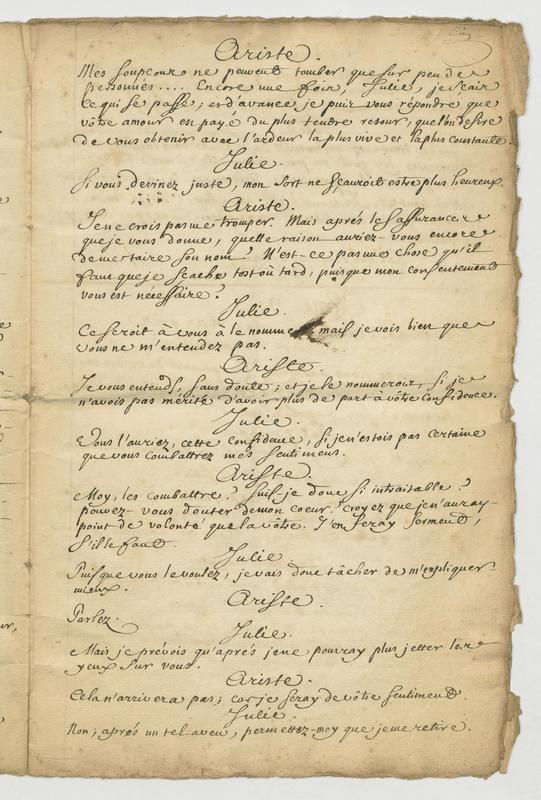 Cinq
Ariste.
Mes soupçons ne peuvent tomber que sur peu de
personnes.... Encore une fois, Julie, je sçais
ce qui se passe; et d'avance, je puis vous répondre que
vôtre amour est payé du plus tendre retour, que l'on desire
de vous obtenir avec l'ardeur la plus vive et la plus constante.
Julie.
Si vous devinez juste, mon sort ne sçauroit estre plus heureux.
Ariste.
Je ne crois pas me tromper. Mais aprés les assurances
que je vous donne, quelle raison auriez-vous encore
de me taire son nom? N'est-ce pas une chose qu'il
faut que je scache tost où tard, puisque mon consentement
vous est nécessaire?
Julie.
Ce seroit à vous à le nommer; mais je vois bien que
vous ne m'entendez pas.
Ariste.
Je vous entends, sans doute; et je le nommerois, si je
n'avois pas mérité d'avoir plus de part à vôtre confidence.
Julie.
Vous l'auriez, cette confidence, si je n'estois pas certaine
que vous combattrez mes sentimens.
Ariste.
Moy, les combattre? Suis-je donc si intraitable?
pouvez-vous douter de mon coeur? croyez que je n'auray
point de volonté que la vôtre. J'en feray serment,
s'il le faut.
Julie
Puisque vous le voulez, je vais donc tâcher de m'expliquer
mieux.
Ariste.
Parlez.
Julie.
Mais je prévois qu'aprés je ne pourray plus jetter les
yeux sur vous.
Ariste.
Cela n'arrivera pas; car je seray de vôtre sentiment.
Julie.
Non; aprés un tel aveu, permettez-moy que je me retire.